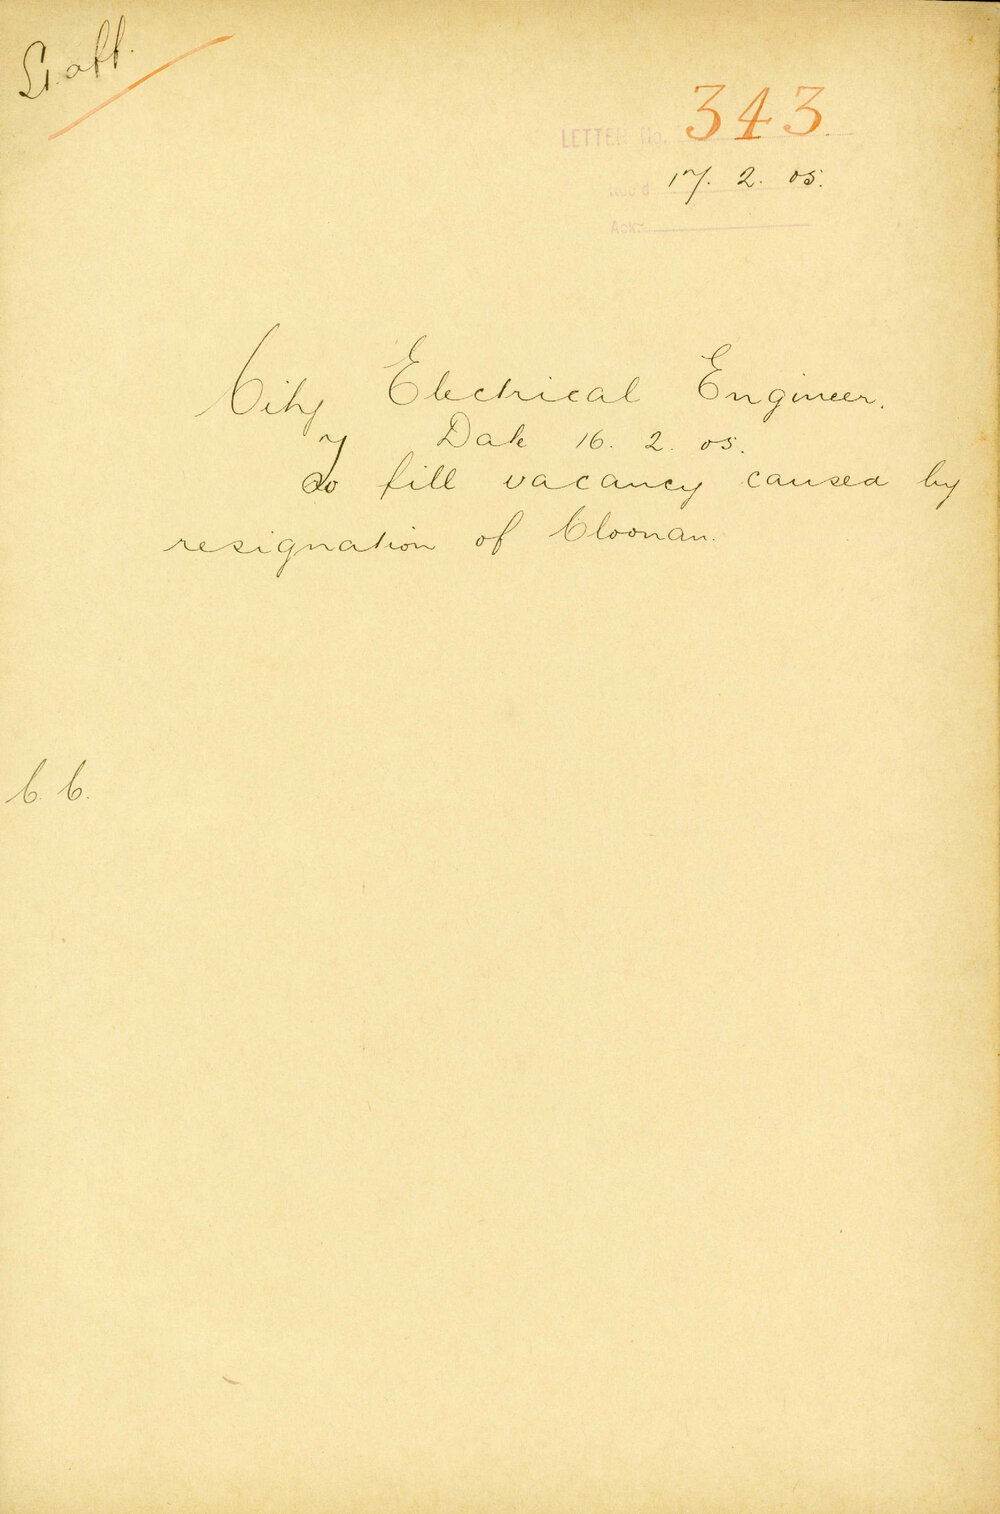 Staff.
LETTER No. 343
Rec'd 17. 2. 05.
Ack.
City Electrical Engineer.
Date 16. 2. 05.
To fill vacancy caused by
resignation of Cloonan.
C. C.